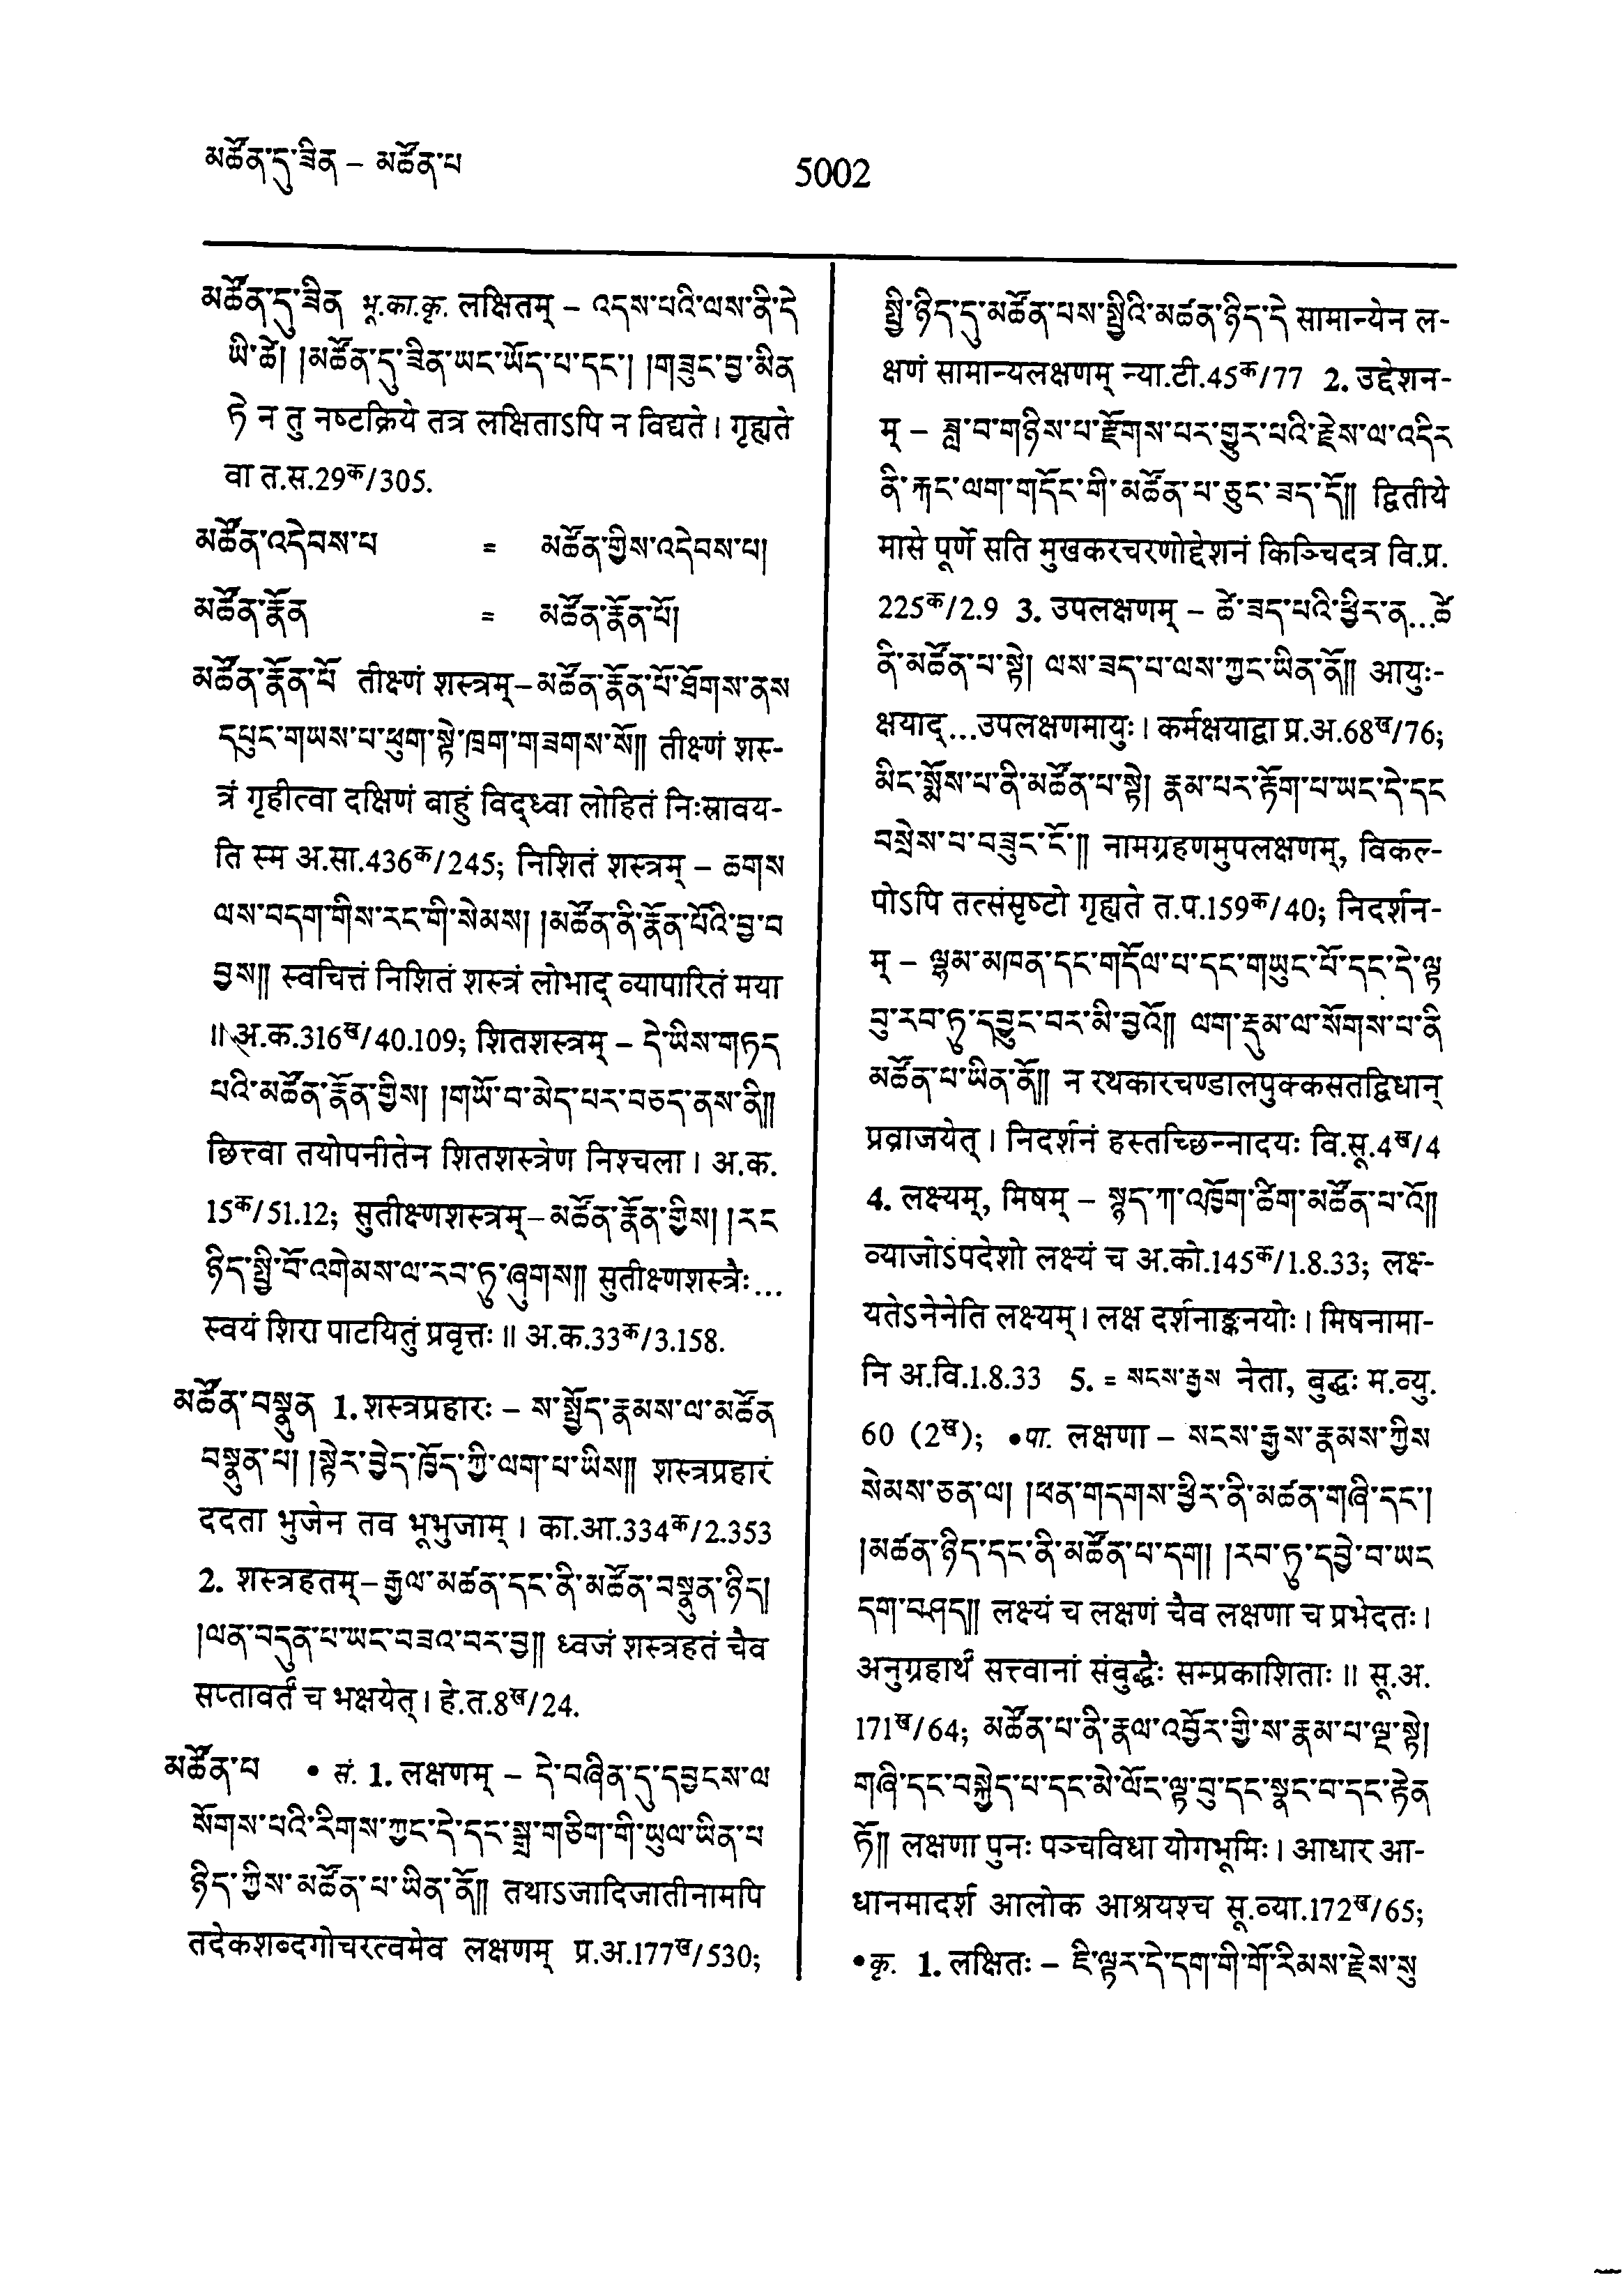 མཚོན་དུ་ཟིན – མཚོན་པ
5002
མཚོན་དུ་ཟིན भू.का.कृ. लक्षितम् – འདས་པའི་ལས་ནི་དེ
ཡི་ཚེ། །མཚོན་དུ་ཟིན་ཡང་ཡོད་པ་དང་། །གཟུང་བྱ་མིན
ཏེ न तु नष्टक्रिये तत्र लक्षिताऽपि न विद्यते। गृह्यते
वा त.स.29क/305.
མཚོན་འདེབས་པ = མཚོན་གྱིས་འདེབས་པ།
མཚོན་རྣོན = མཚོན་རྣོན་པོ།
མཚོན་རྣོན་པོ तीक्ष्णं शस्त्रम्–མཚོན་རྣོན་པོ་ཐོགས་ནས
དཔུང་གཡས་པ་ཕུག་སྟེ་ཁྲག་གཟགས་སོ།། तीक्ष्णं शस्-
त्रं गृहीत्वा दक्षिणं वाहुं विद्ध्वा लोहितं निःस्रावय-
ति स्म अ.सा.436क/245; निशितं शस्त्रम् – ཆགས
ལས་བདག་གིས་རང་གི་སེམས། །མཚོན་ནི་རྣོན་པོའི་བྱ་བ
བྱས།། स्वचित्तं निशितं शस्त्रं लोभाद् व्यापारितं मया
॥ अ.क.316ख/40.109; शितशस्त्रम् – དེ་ཡིས་གཏད
པའི་མཚོན་རྣོན་གྱིས། །གཡོ་བ་མེད་པར་བཅད་ནས་ནི།།
छित्त्वा तयोपनीतेन शितशस्त्रेण निश्चला। अ.क.
15क/51.12; सुतीक्ष्णशस्त्रम्–མཚོན་རྣོན་གྱིས། །རང
ཉིད་སྤྱི་བོ་འགེམས་ལ་རབ་ཏུ་ཞུགས།། सुतीक्ष्णशस्त्रैः...
स्वयं शिरा पाटयितुं प्रवृत्तः॥ अ.क.33क/3.158.
མཚོན་བསྣུན 1. शस्त्रप्रहारः – ས་སྤྱོད་རྣམས་ལ་མཚོན
བསྣུན་པ། །སྟེར་བྱེད་ཁྱོད་ཀྱི་ལག་པ་ཡིས།། शस्त्रप्रहारं
ददता भुजेन तव भूभुजाम्। का.आ.334क/2.353
2. शस्त्रहतम्–རྒྱལ་མཚན་དང་ནི་མཚོན་བསྣུན་ཉིད།
།ལན་བདུན་པ་ཡང་བཟའ་བར་བྱ།། ध्वजं शस्त्रहतं चैव
सप्तावर्तं च भक्षयेत्। हे.त.8ख/24.
མཚོན་པ • सं. 1. लक्षणम् – དེ་བཞིན་དུ་དབྱངས་ལ
སོགས་པའི་རིགས་ཀྱང་དེ་དང་སྒྲ་གཅིག་གི་ཡུལ་ཡིན་པ
ཉིད་ཀྱིས་མཚོན་པ་ཡིན་ནོ།། तथाऽजादिजातीनामपि
तदेकशब्दगोचरत्वमेव लक्षणम् प्र.अ.177ख/530;
སྤྱི་ཉིད་དུ་མཚོན་པས་སྤྱིའི་མཚན་ཉིད་དེ सामान्येन ल-
क्षणं सामान्यलक्षणम् न्या.टी.45क/77 2. उद्देशन-
म् – ཟླ་བ་གཉིས་པ་རྫོགས་པར་གྱུར་པའི་རྗེས་ལ་འདིར
ནི་རྐང་ལག་གདོང་གི་མཚོན་པ་ཅུང་ཟད་དོ།། द्वितीये
मासे पूर्णे सति मुखकरचरणोद्देशनं किञ्चिदत्र वि.प्र.
225क/2.9 3. उपलक्षणम् – ཚེ་ཟད་པའི་ཕྱིར་ན...ཚེ
ནི་མཚོན་པ་སྟེ། ལས་ཟད་པ་ལས་ཀྱང་ཡིན་ནོ།། आयुः-
क्षयाद्...उपलक्षणमायुः। कर्मक्षयाद्वा प्र.अ.68ख/76;
མིང་སྨོས་པ་ནི་མཚོན་པ་སྟེ། རྣམ་པར་རྟོག་པ་ཡང་དེ་དང
བསྲེས་པ་བཟུང་ངོ་།། नामग्रहणमुपलक्षणम्, विकल्-
पोऽपि तत्संसृष्टो गृह्यते त.प.159क/40; निदर्शन-
म् – ལྷམ་མཁན་དང་གདོལ་པ་དང་གཡུང་པོ་དང་དེ་ལྟ
བུ་རབ་ཏུ་དབྱུང་བར་མི་བྱའོ།། ལག་རྡུམ་ལ་སོགས་པ་ནི
མཚོན་པ་ཡིན་ནོ།། न रथकारचण्डालपुक्कसतद्विधान्
प्रव्राजयेत्। निदर्शनं हस्तच्छिन्नादयः वि.सू.4ख/4
4. लक्ष्यम्, मिषम् – སྙད་ཀ་འཁྱོག་ཚིག་མཚོན་པ་འོ།།
व्याजोऽपदेशो लक्ष्यं च अ.को.145क/1.8.33; लक्ष-
यतेऽनेनेति लक्ष्यम्। लक्ष दर्शनाङ्कनयोः। मिषनामा-
नि अ.वि.1.8.33 5. = སངས་རྒྱས नेता, बुद्धः म.व्यु.
60 (2ख); • पा. लक्षणा – སངས་རྒྱས་རྣམས་ཀྱིས
སེམས་ཅན་ལ། །ཕན་གདགས་ཕྱིར་ནི་མཚན་གཞི་དང་།
།མཚན་ཉིད་དང་ནི་མཚོན་པ་དག། །རབ་ཏུ་དབྱེ་བ་ཡང
དག་བཤད།། लक्ष्यं च लक्षणं चैव लक्षणा च प्रभेदतः।
अनुग्रहार्थं सत्त्वानां संबुद्धैः सम्प्रकाशिताः॥ सू.अ.
171ख/64; མཚོན་པ་ནི་རྣལ་འབྱོར་གྱི་ས་རྣམ་པ་ལྔ་སྟེ།
གཞི་དང་བསྐྱེད་པ་དང་མེ་ལོང་ལྟ་བུ་དང་སྣང་བ་དང་རྟེན
ཏོ།། लक्षणा पुनः पञ्चविधा योगभूमिः। आधार आ-
धानमादर्श आलोक आश्रयश्च सू.व्या.172ख/65;
• कृ. 1. लक्षितः – ཇི་ལྟར་དེ་དག་གི་གོ་རིམས་རྗེས་སུ